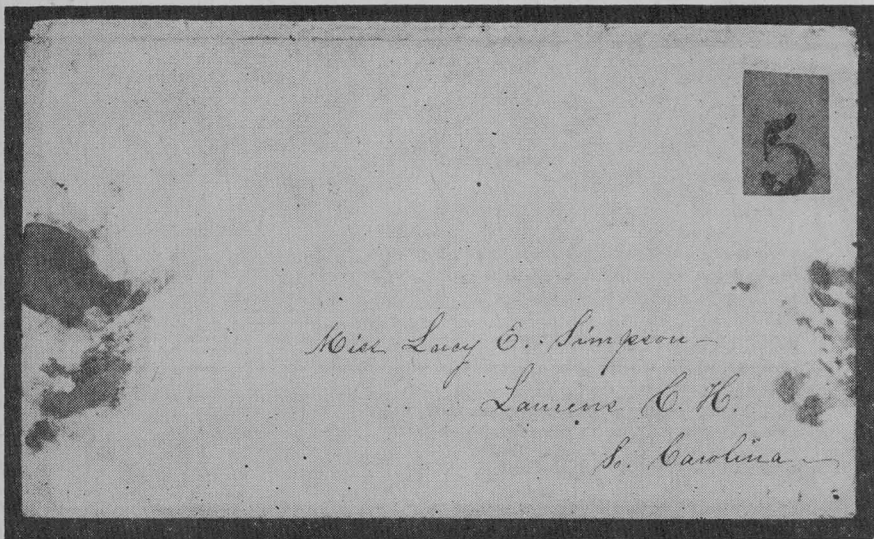 5
Miss Lucy E. Simpson –
Laurens C. H.
So. Carolina –